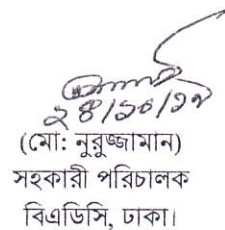 ২৪/১০/১৭
(মো: নুরুজ্জামান)
সহকারী পরিচালক
বিএডিসি, ঢাকা।